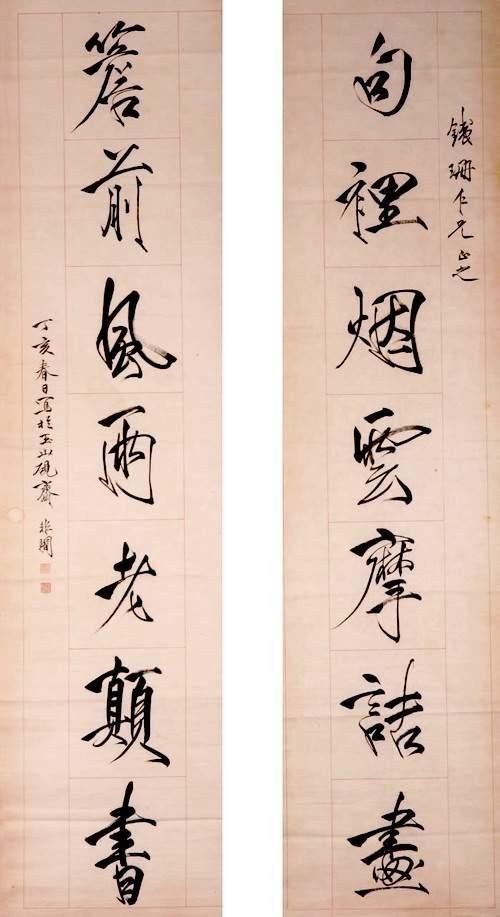 鐵珊仁兄正之
句裡烟雲摩詰畫
簷前風雨老顛書
丁亥春日寫於玉山硯齋 非闇